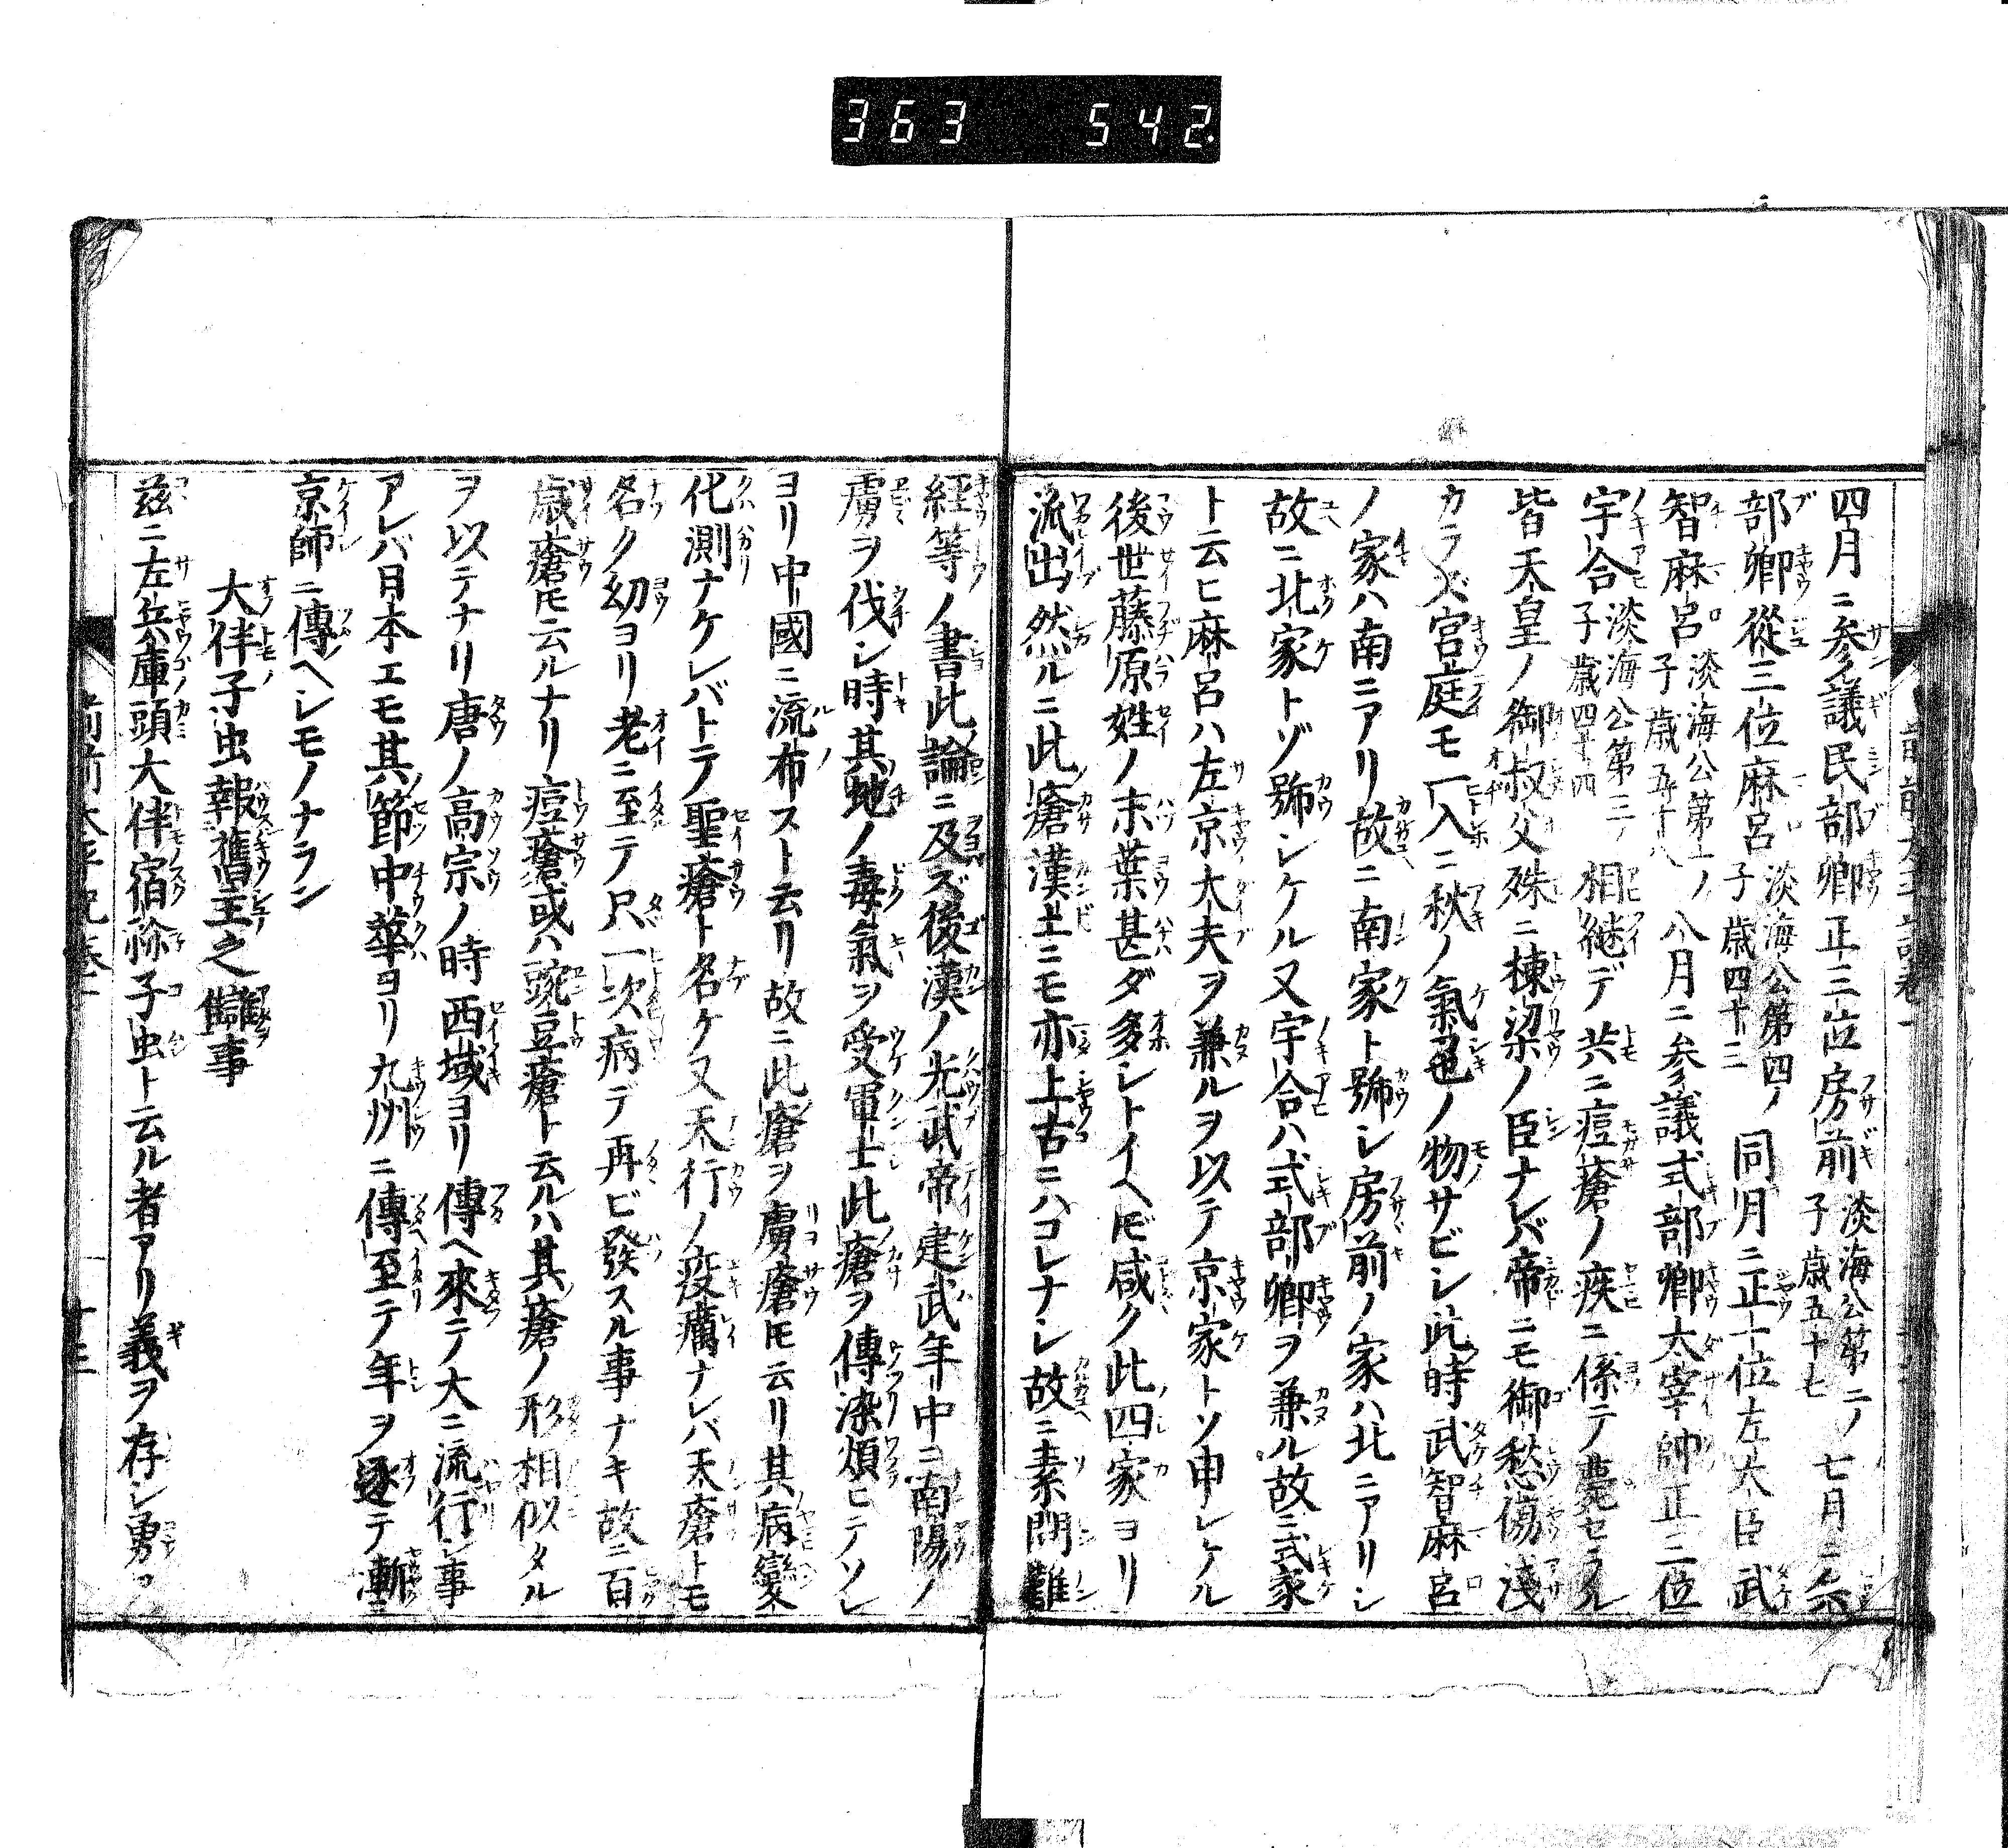 363 542
四月ニ參議民部卿正三位房前淡海公第二ノ子歳五十七七月ニ參
部卿從三位麻呂淡海公第四ノ子歳四十三同月ニ正一位左大臣武
智麻呂淡海公第一ノ子歳五十八八月ニ參議式部卿太宰帥正三位
宇合淡海公第三ノ子歳四十四相継デ共ニ痘瘡ノ疾ニ係テ薨セラル
皆天皇ノ御叔父殊ニ棟梁ノ臣ナレバ帝ニモ御愁傷淺
カラズ宮庭モ一入ニ秋ノ氣色ノ物サビシ此時武智麻呂
ノ家ハ南ニアリ故ニ南家ト號シ房前ノ家ハ北ニアリシ
故ニ北家トゾ號シケル又宇合ハ式部卿ヲ兼ル故ニ式家
ト云ヒ麻呂ハ左京大夫ヲ兼ルヲ以テ京家トソ申シケル
後世藤原姓ノ末葉甚ダ多シトイヘ𪜈咸ク此四家ヨリ
流出ヅ然ルニ此瘡漢土ニモ亦上古ニハコレナシ故ニ素問難
經等ノ書此論ニ及ズ後漢ノ光武帝建武年中ニ南陽ノ
虜ヲ伐シ時其地ノ毒氣ヲ受軍士此瘡ヲ傳染煩ヒテソレ
ヨリ中國ニ流布スト云リ故ニ此瘡ヲ虜瘡𪜈云リ其病變
化測ナケレバトテ聖瘡ト名ケ又天行ノ疫癘ナレバ天瘡トモ
名ク幼ヨリ老ニ至テ只一次病デ再ビ發スル事ナキ故ニ百
歳瘡𪜈云ルナリ痘瘡或ハ豌豆瘡ト云ルハ其瘡ノ形相似タル
ヲ以テナリ唐ノ高宗ノ時西域ヨリ傳ヘ來テ大ニ流行シ事
アレバ日本エモ其節中華ヨリ九州ニ傳至テ年ヲ逐テ漸ニ
京師ニ傳ヘシモノナラン
大伴子虫報舊主之讎事
茲ニ左兵庫頭大伴宿祢子虫ト云ル者アリ義ヲ存シ勇
前前太平記卷一
十三